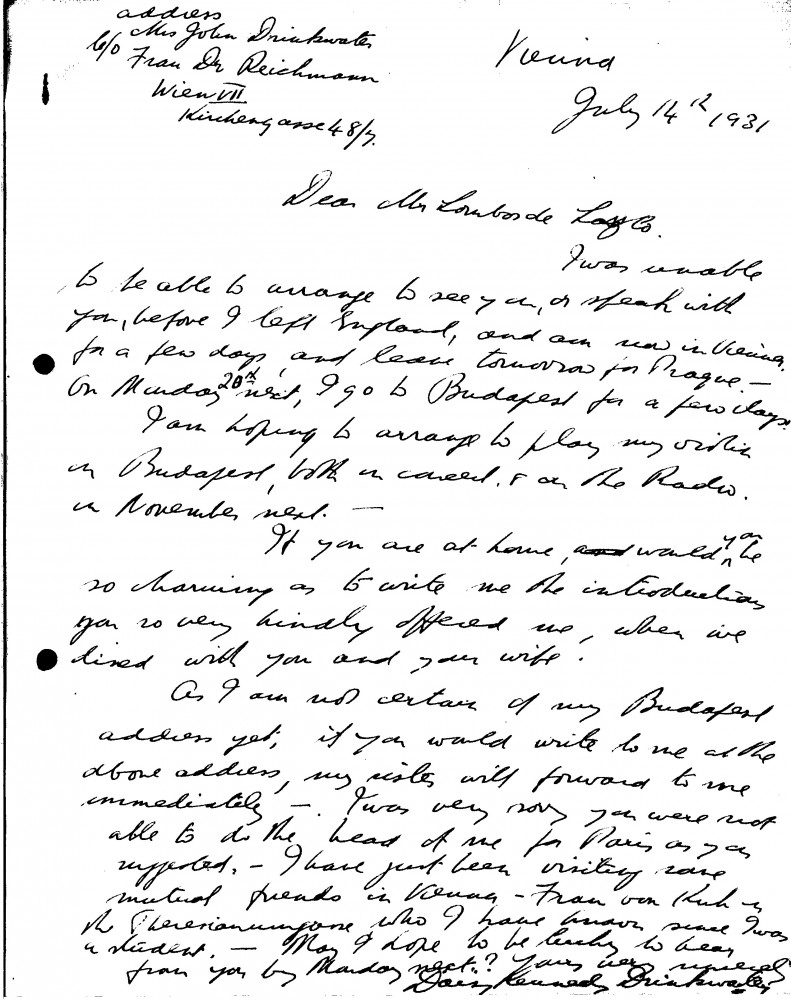 address
Mrs John Drinkwater
c/o Frau Dr Reichmann
Wien VII
Kirchengasse 48/7.
Vienna
July 14th 1931
Dear Mr Lombos de Laszlo.
I was unable
to be able to arrange to see you, or speak with
you, before I left England, and am now in Vienna
for a few days, and leave tomorrow for Prague. —
On Monday 20th next, I go to Budapest for a few days.
I am hoping to arrange to play my violin
in Budapest, both in concert, & on the Radio.
in November next. —
If you are at home, and would you be
so charming as to write me the introductions
you so very kindly offered me, when we
dined with you and your wife.
As I am not certain of my Budapest
address yet, if you would write to me at the
above address, my sister will forward to me
immediately —. I was very sorry you were not
able to do the head of me for Paris as you
suggested. — I have just been visiting some
mutual friends in Vienna — Frau von Kuh in
the Theresianumgasse, who I have known since I was
a student. — May I hope to be lucky to hear
from you by Monday next.? Yours very sincerely
Daisy Kennedy Drinkwater